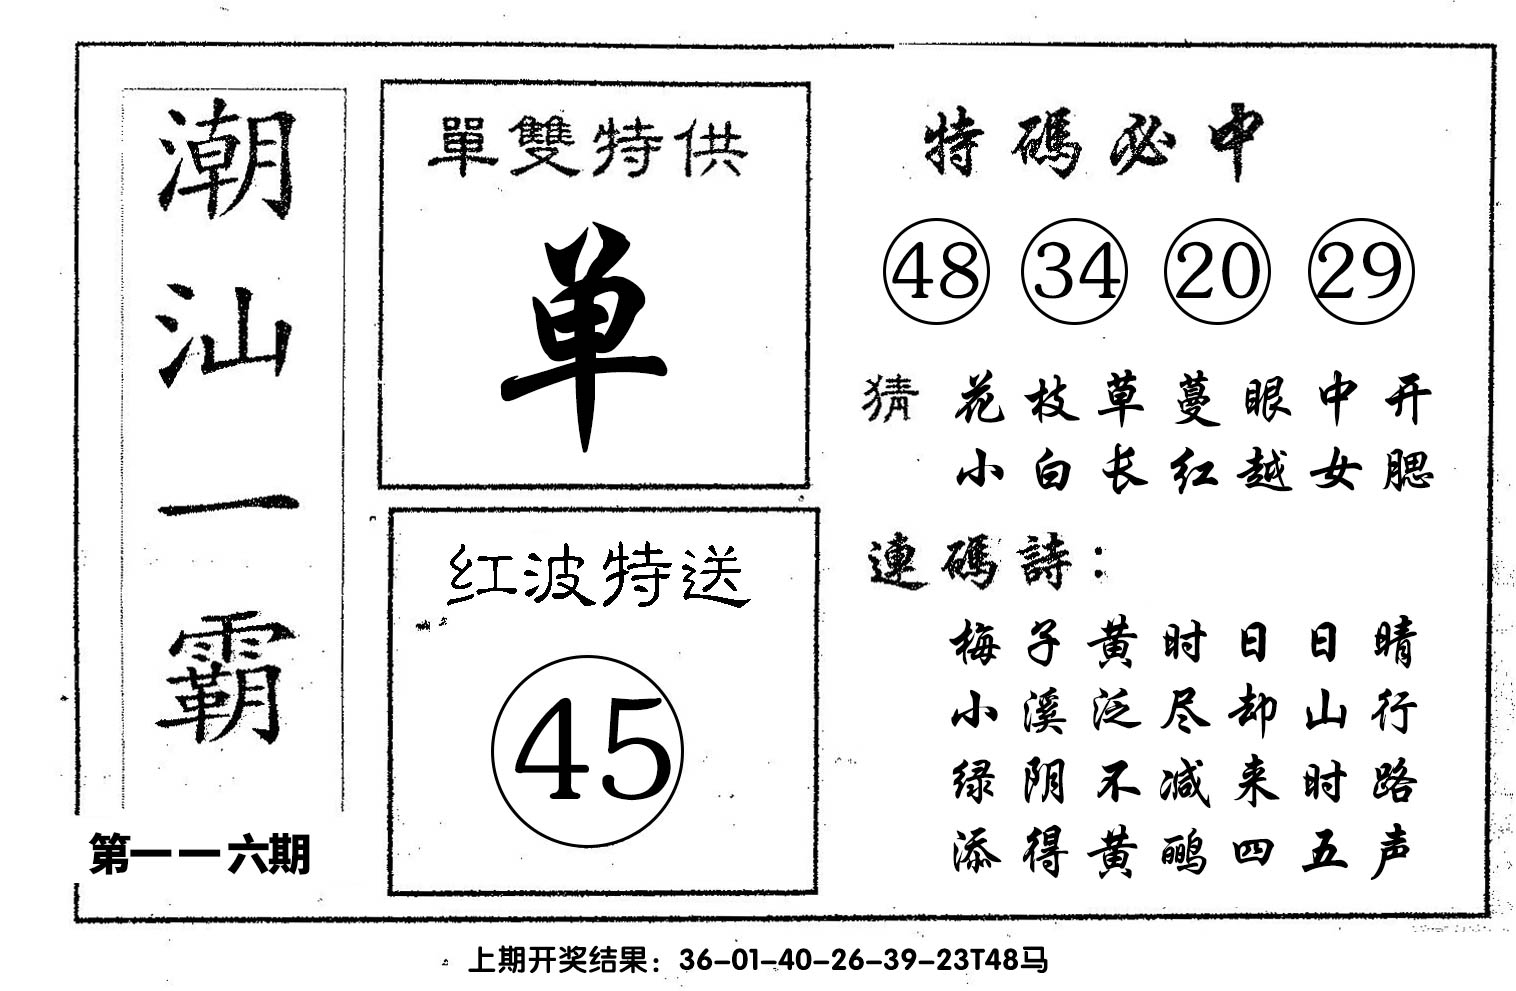 潮汕一霸
第一一六期
單雙特供
单
红波特送
45
特碼必中
48 34 20 29
猜 花枝草蔓眼中开
小白长红越女腮
連碼詩：
梅子黄时日日晴
小溪泛尽却山行
绿阴不减来时路
添得黄鹂四五声
上期开奖结果：36-01-40-26-39-23T48马